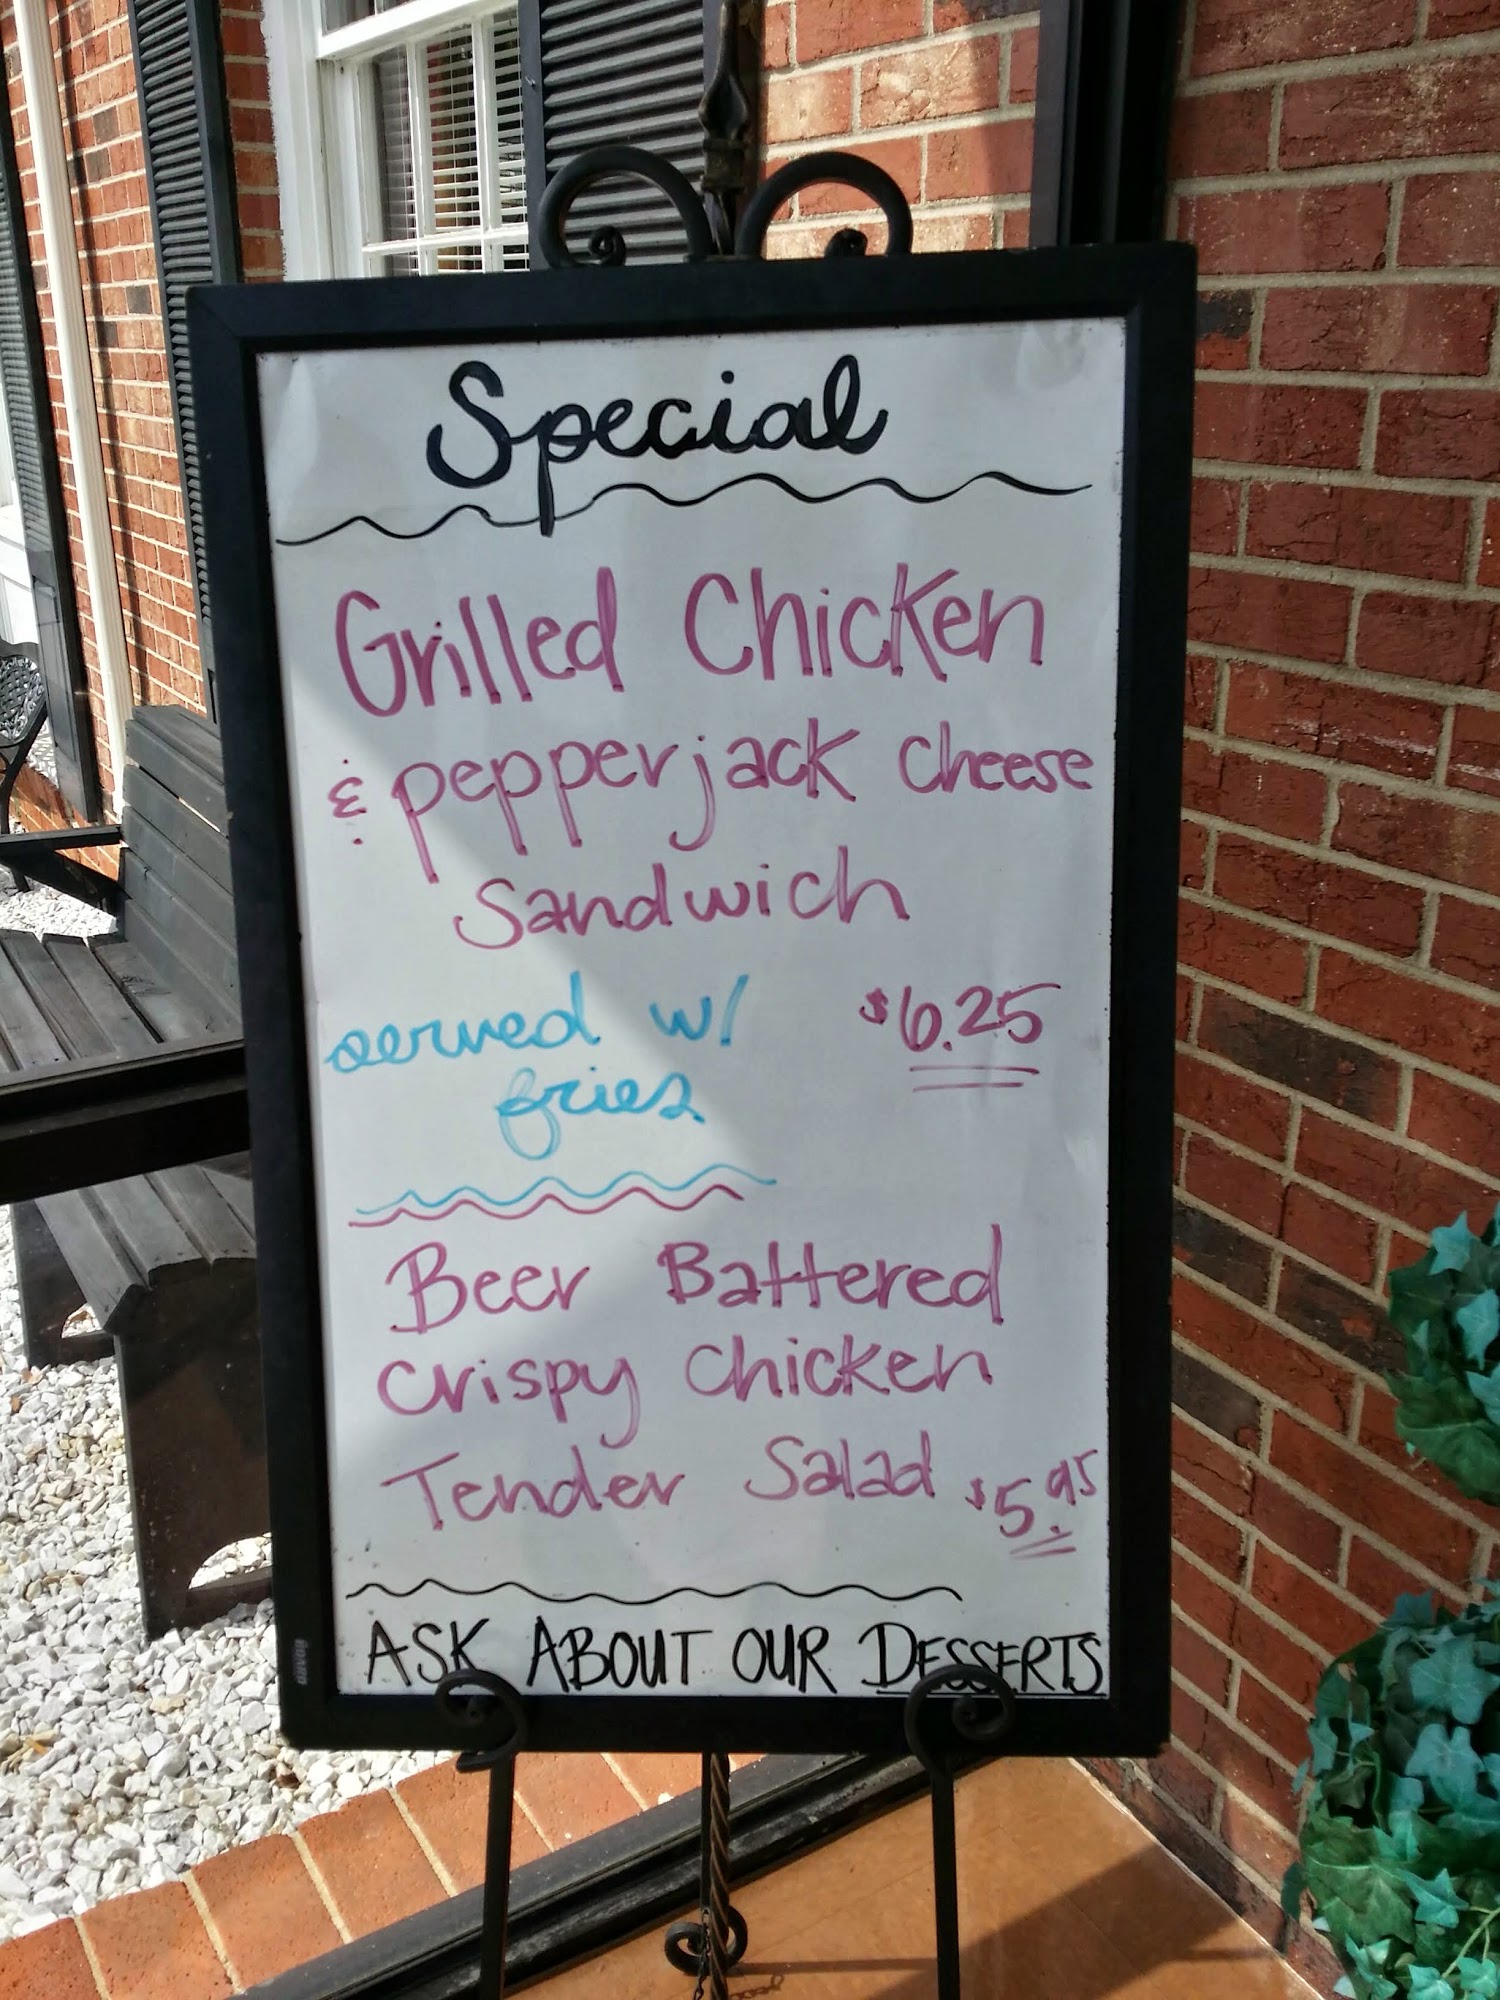 Special
Grilled Chicken
& pepperjack cheese
Sandwich
served w/ $6.25
fries
Beer Battered
Crispy Chicken
Tender Salad $5.95
ASK ABOUT OUR DESSERTS